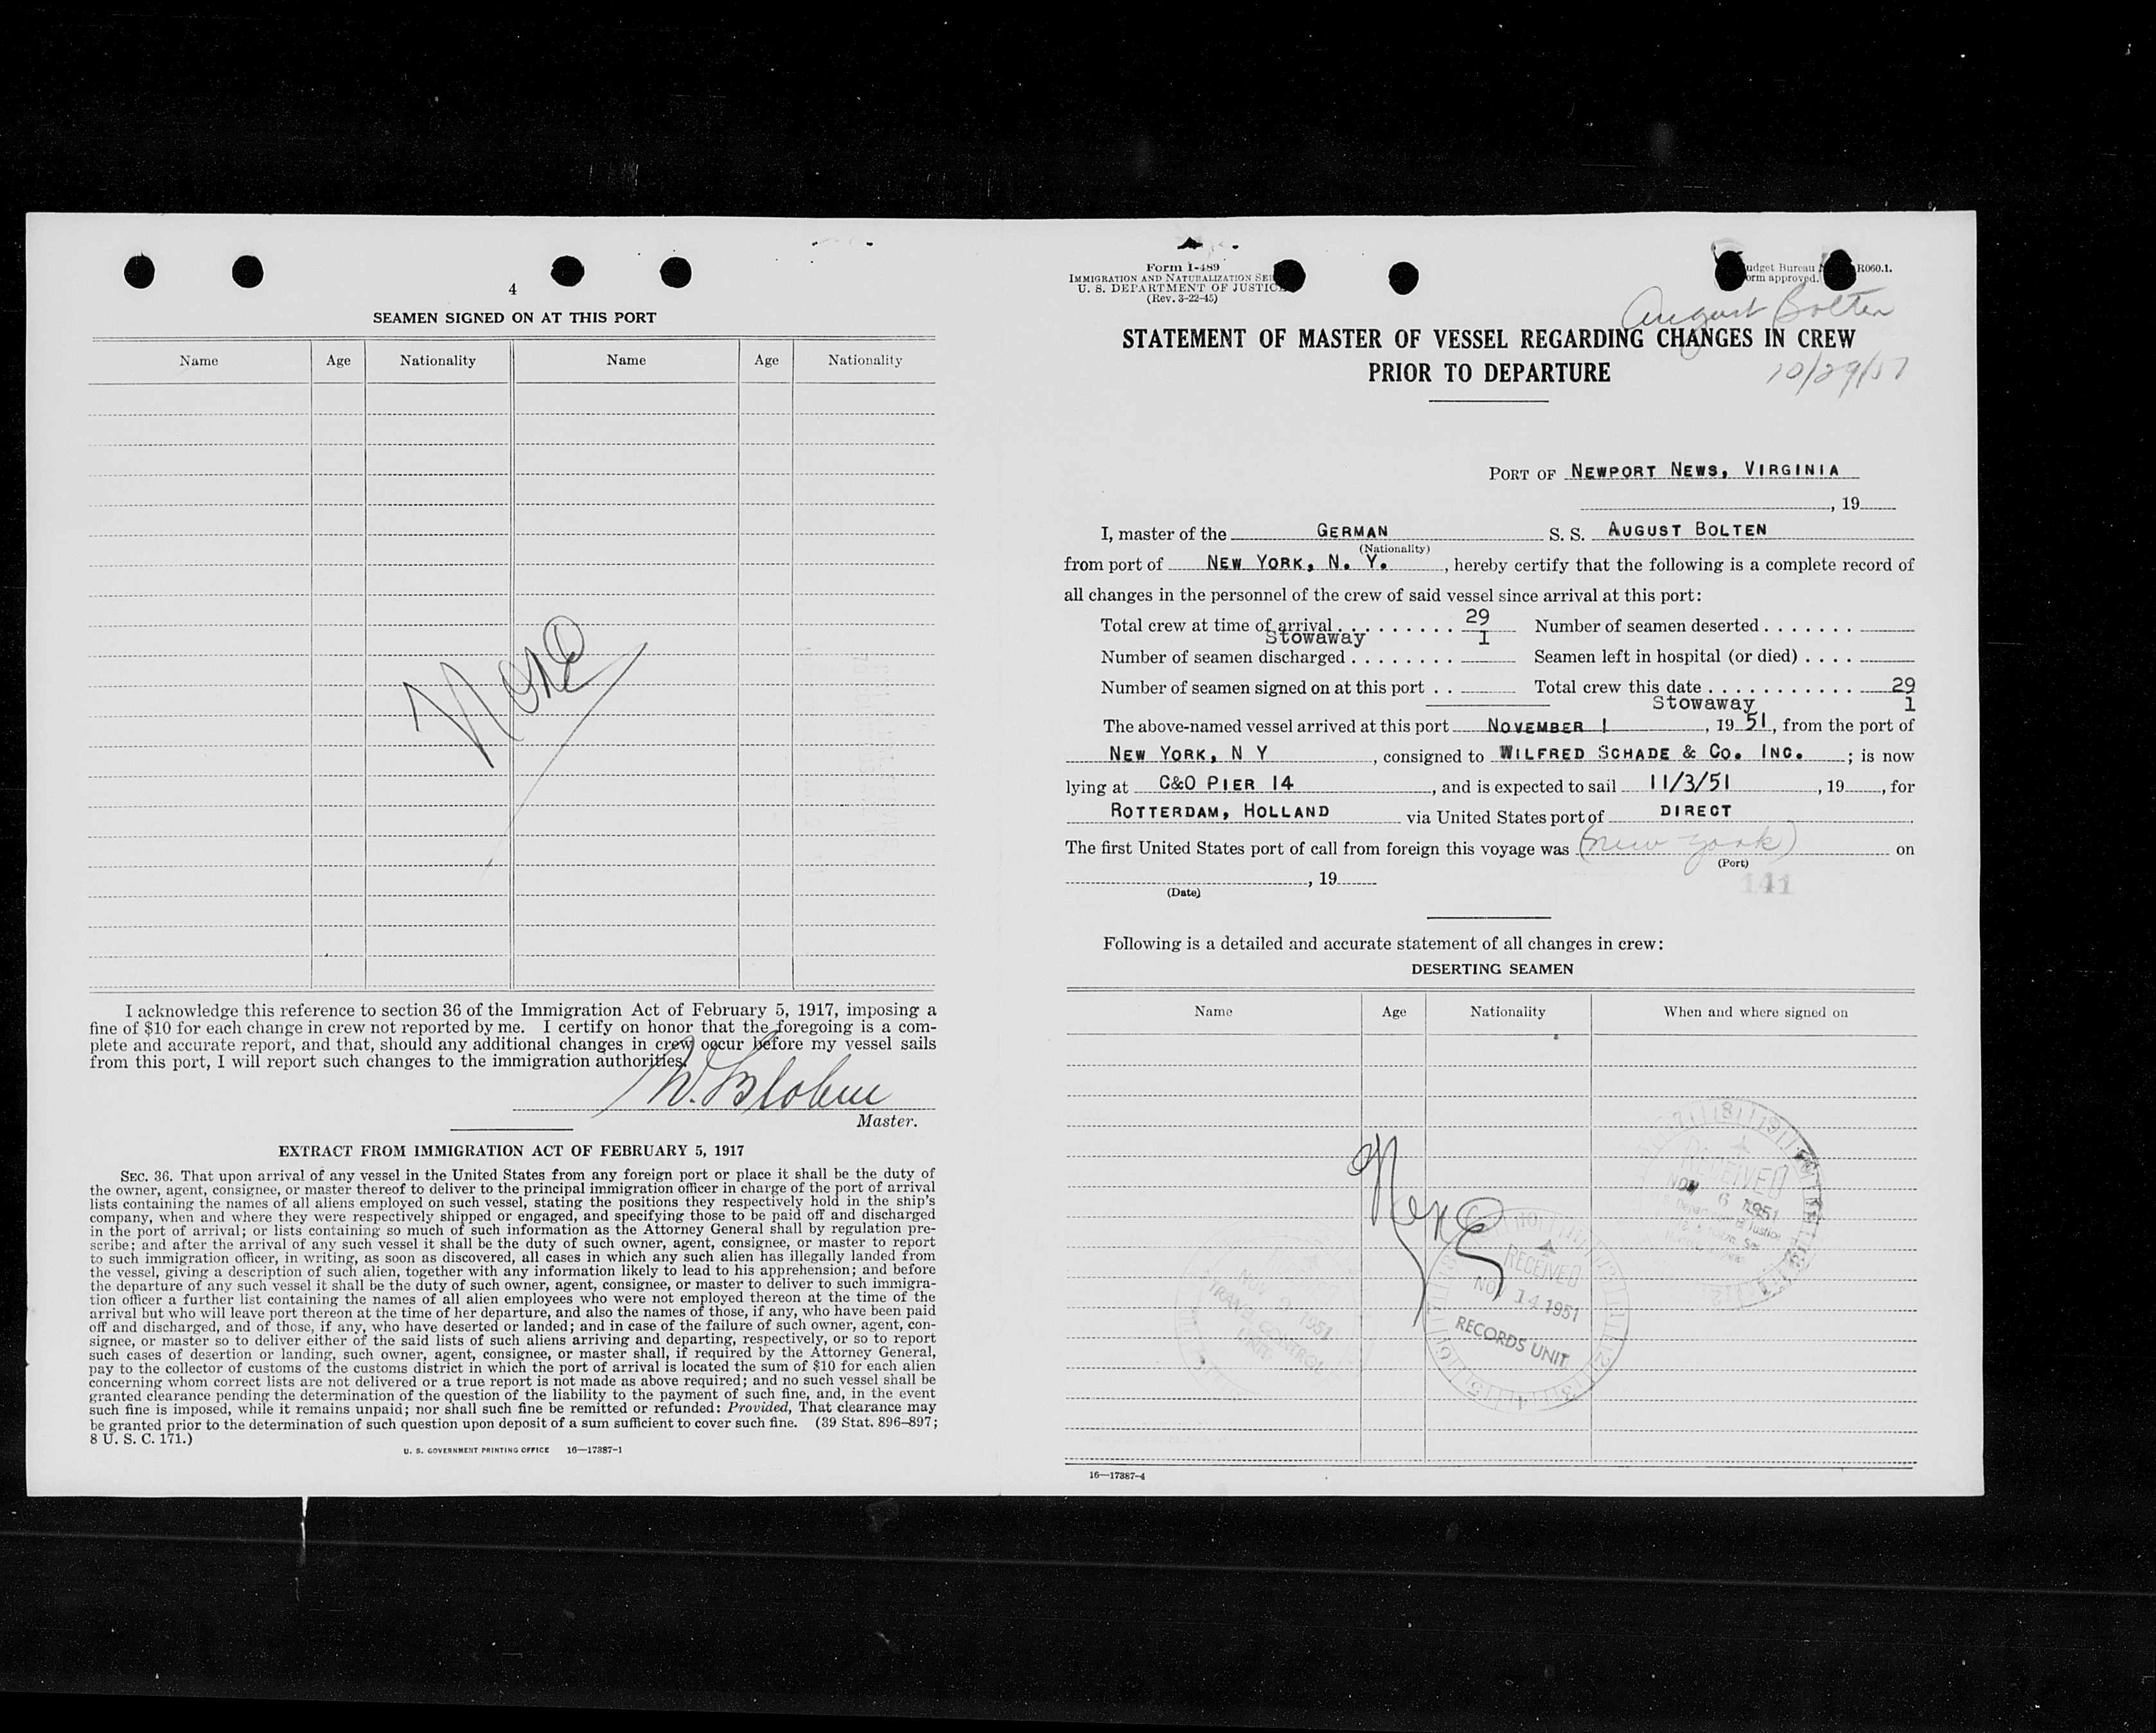 4
SEAMEN SIGNED ON AT THIS PORT
Name Age Nationality Name Age Nationality
None
I acknowledge this reference to section 36 of the Immigration Act of February 5, 1917, imposing a
fine of $10 for each change in crew not reported by me. I certify on honor that the foregoing is a com-
plete and accurate report, and that, should any additional changes in crew occur before my vessel sails
from this port, I will report such changes to the immigration authorities.
Master.
EXTRACT FROM IMMIGRATION ACT OF FEBRUARY 5, 1917
SEC. 36. That upon arrival of any vessel in the United States from any foreign port or place it shall be the duty of
the owner, agent, consignee, or master thereof to deliver to the principal immigration officer in charge of the port of arrival
lists containing the names of all aliens employed on such vessel, stating the positions they respectively hold in the ship's
company, when and where they were respectively shipped or engaged, and specifying those to be paid off and discharged
in the port of arrival; or lists containing so much of such information as the Attorney General shall by regulation pre-
scribe; and after the arrival of any such vessel it shall be the duty of such owner, agent, consignee, or master to report
to such immigration officer, in writing, as soon as discovered, all cases in which any such alien has illegally landed from
the vessel, giving a description of such alien, together with any information likely to lead to his apprehension; and before
the departure of any such vessel it shall be the duty of such owner, agent, consignee, or master to deliver to such immigra-
tion officer a further list containing the names of all alien employees who were not employed thereon at the time of the
arrival but who will leave port thereon at the time of her departure, and also the names of those, if any, who have been paid
off and discharged, and of those, if any, who have deserted or landed; and in case of the failure of such owner, agent, con-
signee, or master so to deliver either of the said lists of such aliens arriving and departing, respectively, or so to report
such cases of desertion or landing, such owner, agent, consignee, or master shall, if required by the Attorney General,
pay to the collector of customs of the customs district in which the port of arrival is located the sum of $10 for each alien
concerning whom correct lists are not delivered or a true report is not made as above required; and no such vessel shall be
granted clearance pending the determination of the question of the liability to the payment of such fine, and, in the event
such fine is imposed, while it remains unpaid; nor shall such fine be remitted or refunded: Provided, That clearance may
be granted prior to the determination of such question upon deposit of a sum sufficient to cover such fine. (39 Stat. 896–897;
8 U. S. C. 171.)
U. S. GOVERNMENT PRINTING OFFICE 16—17387-1
Form I-489
IMMIGRATION AND NATURALIZATION
U. S. DEPARTMENT OF JUSTICE
(Rev. 3-22-45)
Budget Bureau R060.1.
Form approved.
August Bolten
STATEMENT OF MASTER OF VESSEL REGARDING CHANGES IN CREW
PRIOR TO DEPARTURE
10/29/51
PORT OF NEWPORT NEWS, VIRGINIA
, 19
I, master of the GERMAN S. S. AUGUST BOLTEN
(Nationality)
from port of NEW YORK, N. Y. , hereby certify that the following is a complete record of
all changes in the personnel of the crew of said vessel since arrival at this port:
Total crew at time of arrival 29 Number of seamen deserted
Stowaway 1
Number of seamen discharged Seamen left in hospital (or died)
Number of seamen signed on at this port Total crew this date 29
Stowaway 1
The above-named vessel arrived at this port NOVEMBER 1 , 19 51, from the port of
NEW YORK, N Y , consigned to WILFRED SCHADE & CO. INC. ; is now
lying at C&O PIER 14 , and is expected to sail 11/3/51 , 19 , for
ROTTERDAM, HOLLAND via United States port of DIRECT .
The first United States port of call from foreign this voyage was (New York) on
(Port)
141
, 19
(Date)
Following is a detailed and accurate statement of all changes in crew:
DESERTING SEAMEN
Name Age Nationality When and where signed on
None
RECEIVED
NOV 6 1951
RECEIVED
NOV 14 1951
RECORDS UNIT
NOV 9 1951
CONTROL
UNIT
16—17387-4